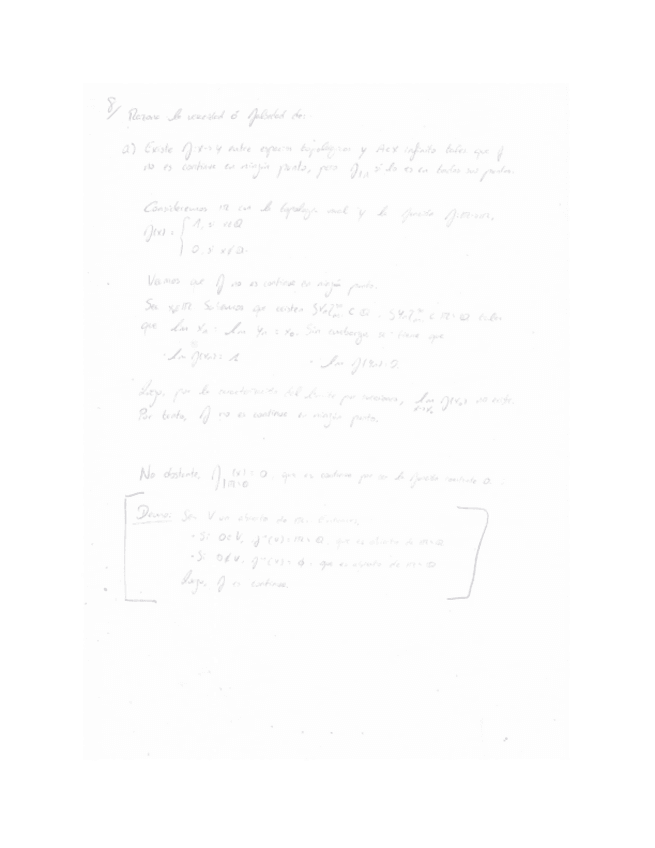 8/ Razona la veracidad ó falsedad de:
a) Existe f: X→Y entre espacios topológicos y A⊂X infinito tales que f
no es continua en ningún punto, pero f|A sí lo es en todos sus puntos.
Consideremos ℝ con la topología usual y la función f: ℝ→ℝ,
f(x) = { 1, si x∈ℚ
0, si x∉ℚ
Veamos que f no es continua en ningún punto.
Sea x₀∈ℝ. Sabemos que existen {xₙ} ⊂ ℚ, {yₙ} ⊂ ℝ-ℚ tales
que lim xₙ = lim yₙ = x₀. Sin embargo, se tiene que
· lim f(xₙ) = 1 · lim f(yₙ) = 0
Luego, por la del límite por sucesiones, lim f(x) no existe.
Por tanto, f no es continua en ningún punto.
No obstante, f|ℝ-ℚ (x) = 0, que es continua por ser la función constante 0.
Demo: Sea V un abierto de ℝ.
· Si 0∈V, f⁻¹(V) = ℝ-ℚ que es abierto de ℝ-ℚ
· Si 0∉V, f⁻¹(V) = ∅, que es abierto de ℝ-ℚ
Luego, f es continua.